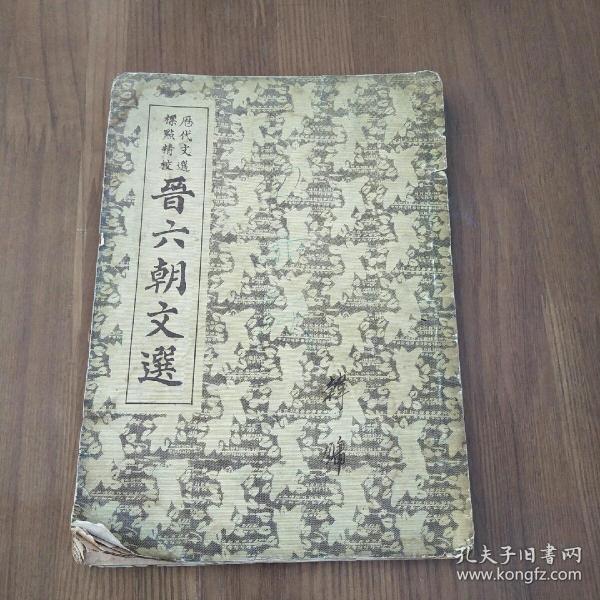 历代文選
標點精校
晋六朝文選
孔夫子旧書网
www.kongfz.com